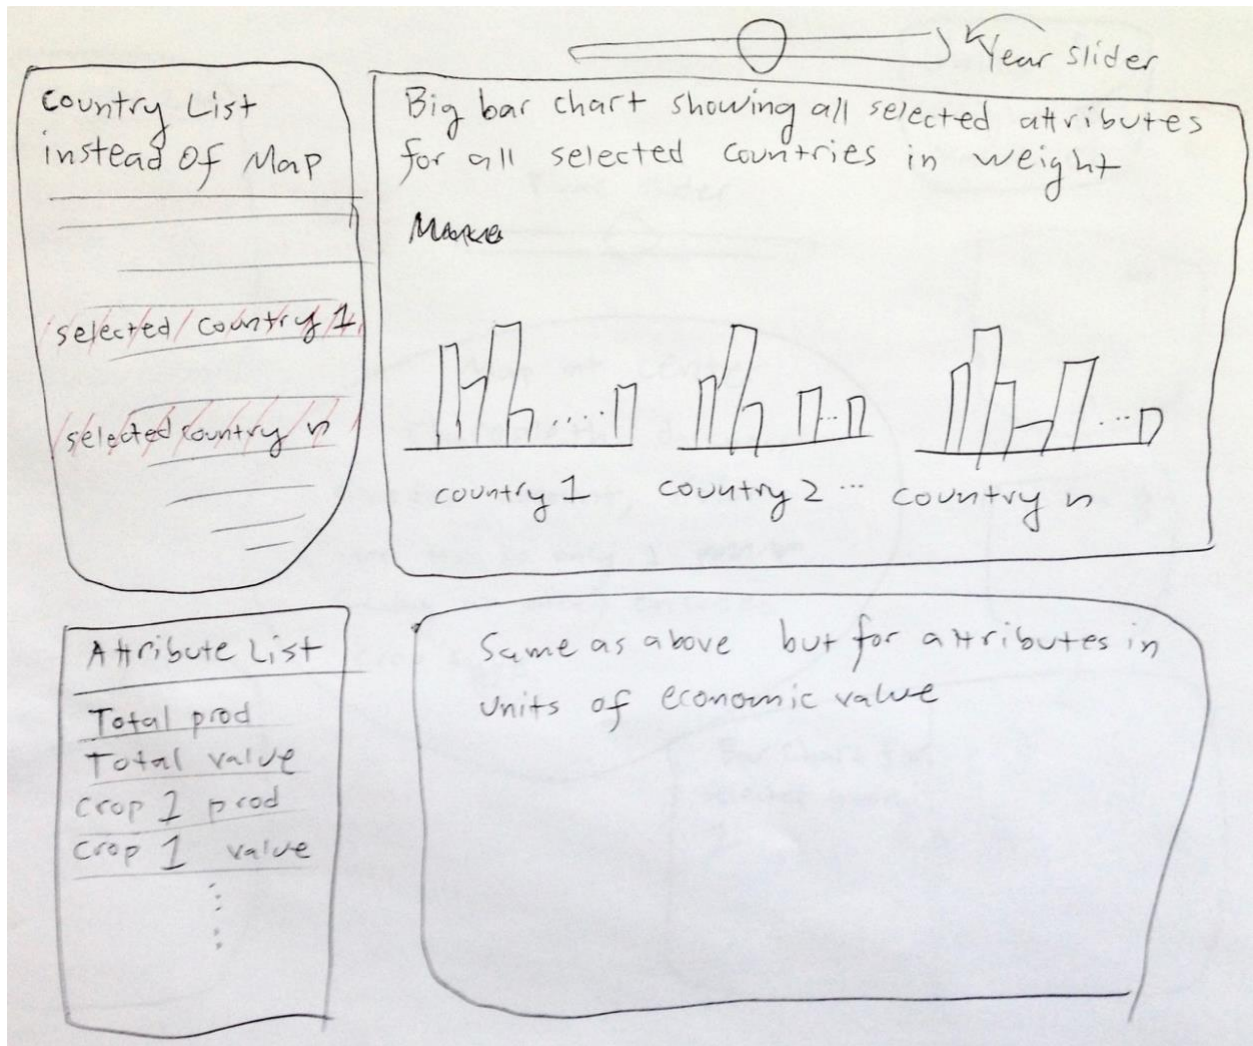 Year slider
Country List
instead of Map
selected country 1
selected country n
Big bar chart showing all selected attributes
for all selected countries in weight
country 1
country 2 ...
country n
Attribute List
Total prod
Total value
crop 1 prod
crop 1 value
Same as above but for attributes in
units of economic value